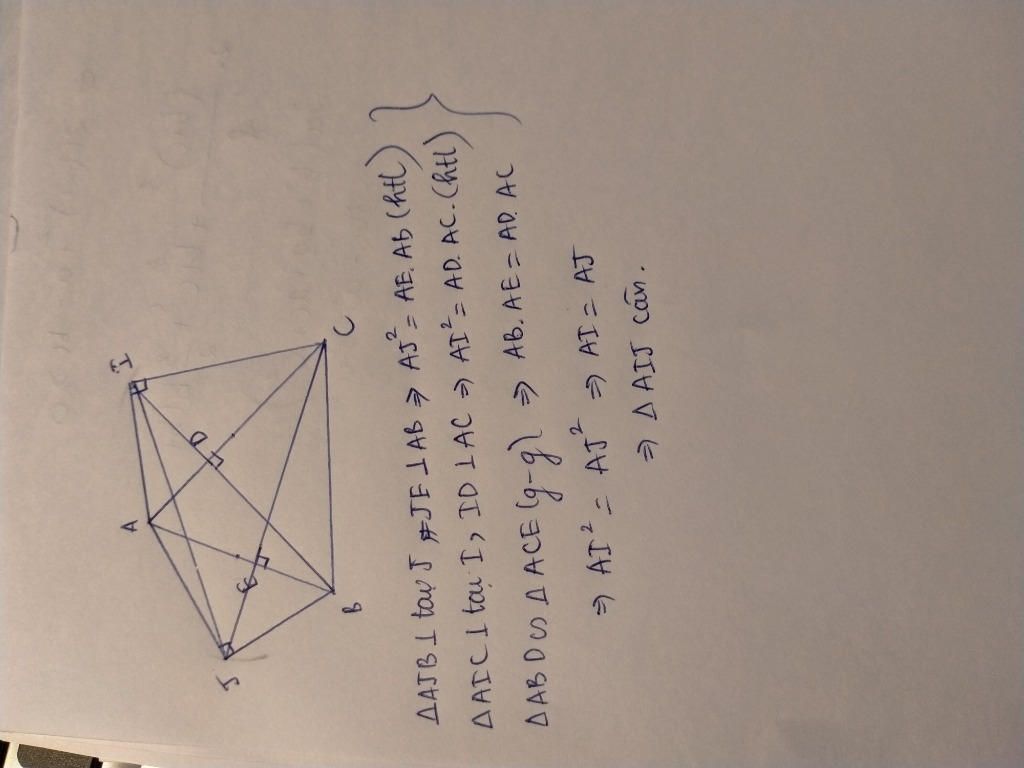 I
A
D
E
J
C
B
ΔAJB ⊥ tại J, JE ⊥ AB ⇒ AJ² = AE. AB (htl)
ΔAIC ⊥ tại I, ID ⊥ AC ⇒ AI² = AD. AC. (htl)
ΔABD ∽ ΔACE (g-g) ⇒ AB. AE = AD. AC
⇒ AI² = AJ² ⇒ AI = AJ
⇒ ΔAIJ cân.